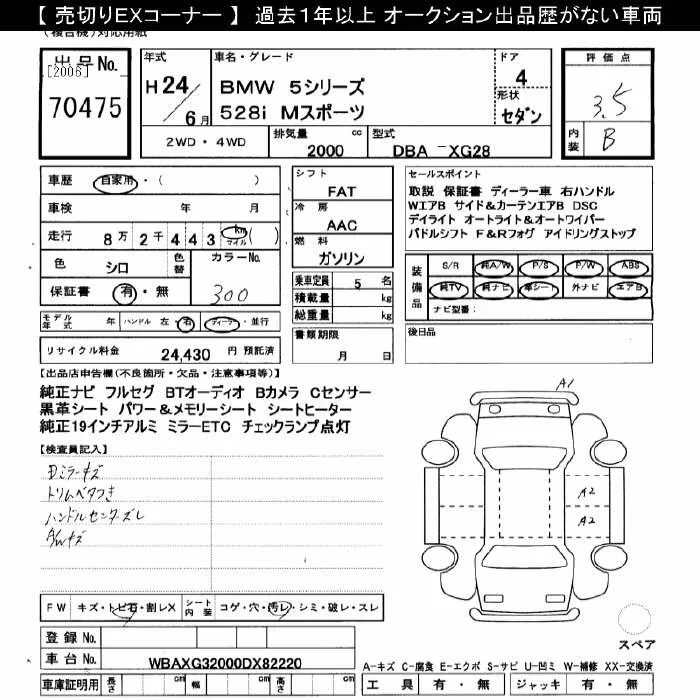 【 売切りEXコーナー 】 過去1年以上 オークション出品歴がない車両
(複合機)対応用紙
出品No.
[2006]
70475
年式
H 24/6月
車名・グレード
BMW 5シリーズ
528i Mスポーツ
ドア
4
形状
セダン
2WD・4WD
排気量 cc
2000
型式
DBA －XG28
評価点
3.5
内装
B
車歴 自家用・( )
車検 年 月
走行 8万2千443 km マイル ( )
色 シロ 色替 カラーNo.
300
保証書 有・無
モデル年式 年 ハンドル 左・右 ディーラー・並行
リサイクル料金 24,430 円 預託済
シフト
FAT
冷房
AAC
燃料
ガソリン
乗車定員 5 名
積載量 kg
総重量 kg
書類期限
月 日
セールスポイント
取説 保証書 ディーラー車 右ハンドル
WエアB サイド&カーテンエアB DSC
デイライト オートライト&オートワイパー
パドルシフト F&Rフォグ アイドリングストップ
装備品
S/R 純A/W P/S P/W ABS
純TV 純ナビ 革シート 外ナビ エアB
ナビ型番:
後日品
【出品店申告欄(不良箇所・欠品・注意事項等)】
純正ナビ フルセグ BTオーディオ Bカメラ Cセンサー
黒革シート パワー&メモリーシート シートヒーター
純正19インチアルミ ミラーETC チェックランプ点灯
【検査員記入】
Dミラーキズ
トリムベタつき
ハンドルセンターズレ
A/Wキズ
A1
A2
A2
スペア
FW キズ・トビ石・割レX シート内装 コゲ・穴・汚レ・シミ・破レ・スレ
登録 No.
車台 No. WBAXG32000DX82220
車庫証明用 長さ cm 幅 cm 高さ cm
A-キズ C-腐食 E-エクボ S-サビ U-凹ミ W-補修 XX-交換済
工具 有・無 ジャッキ 有・無